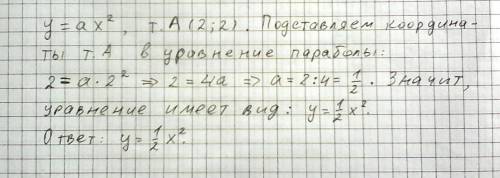 y = ax², т. А (2; 2). Подставляем координа-
ты т. А в уравнение параболы:
2 = a · 2² ⇒ 2 = 4a ⇒ a = 2 : 4 = 1/2. Значит,
уравнение имеет вид: y = 1/2 x².
Ответ: y = 1/2 x².